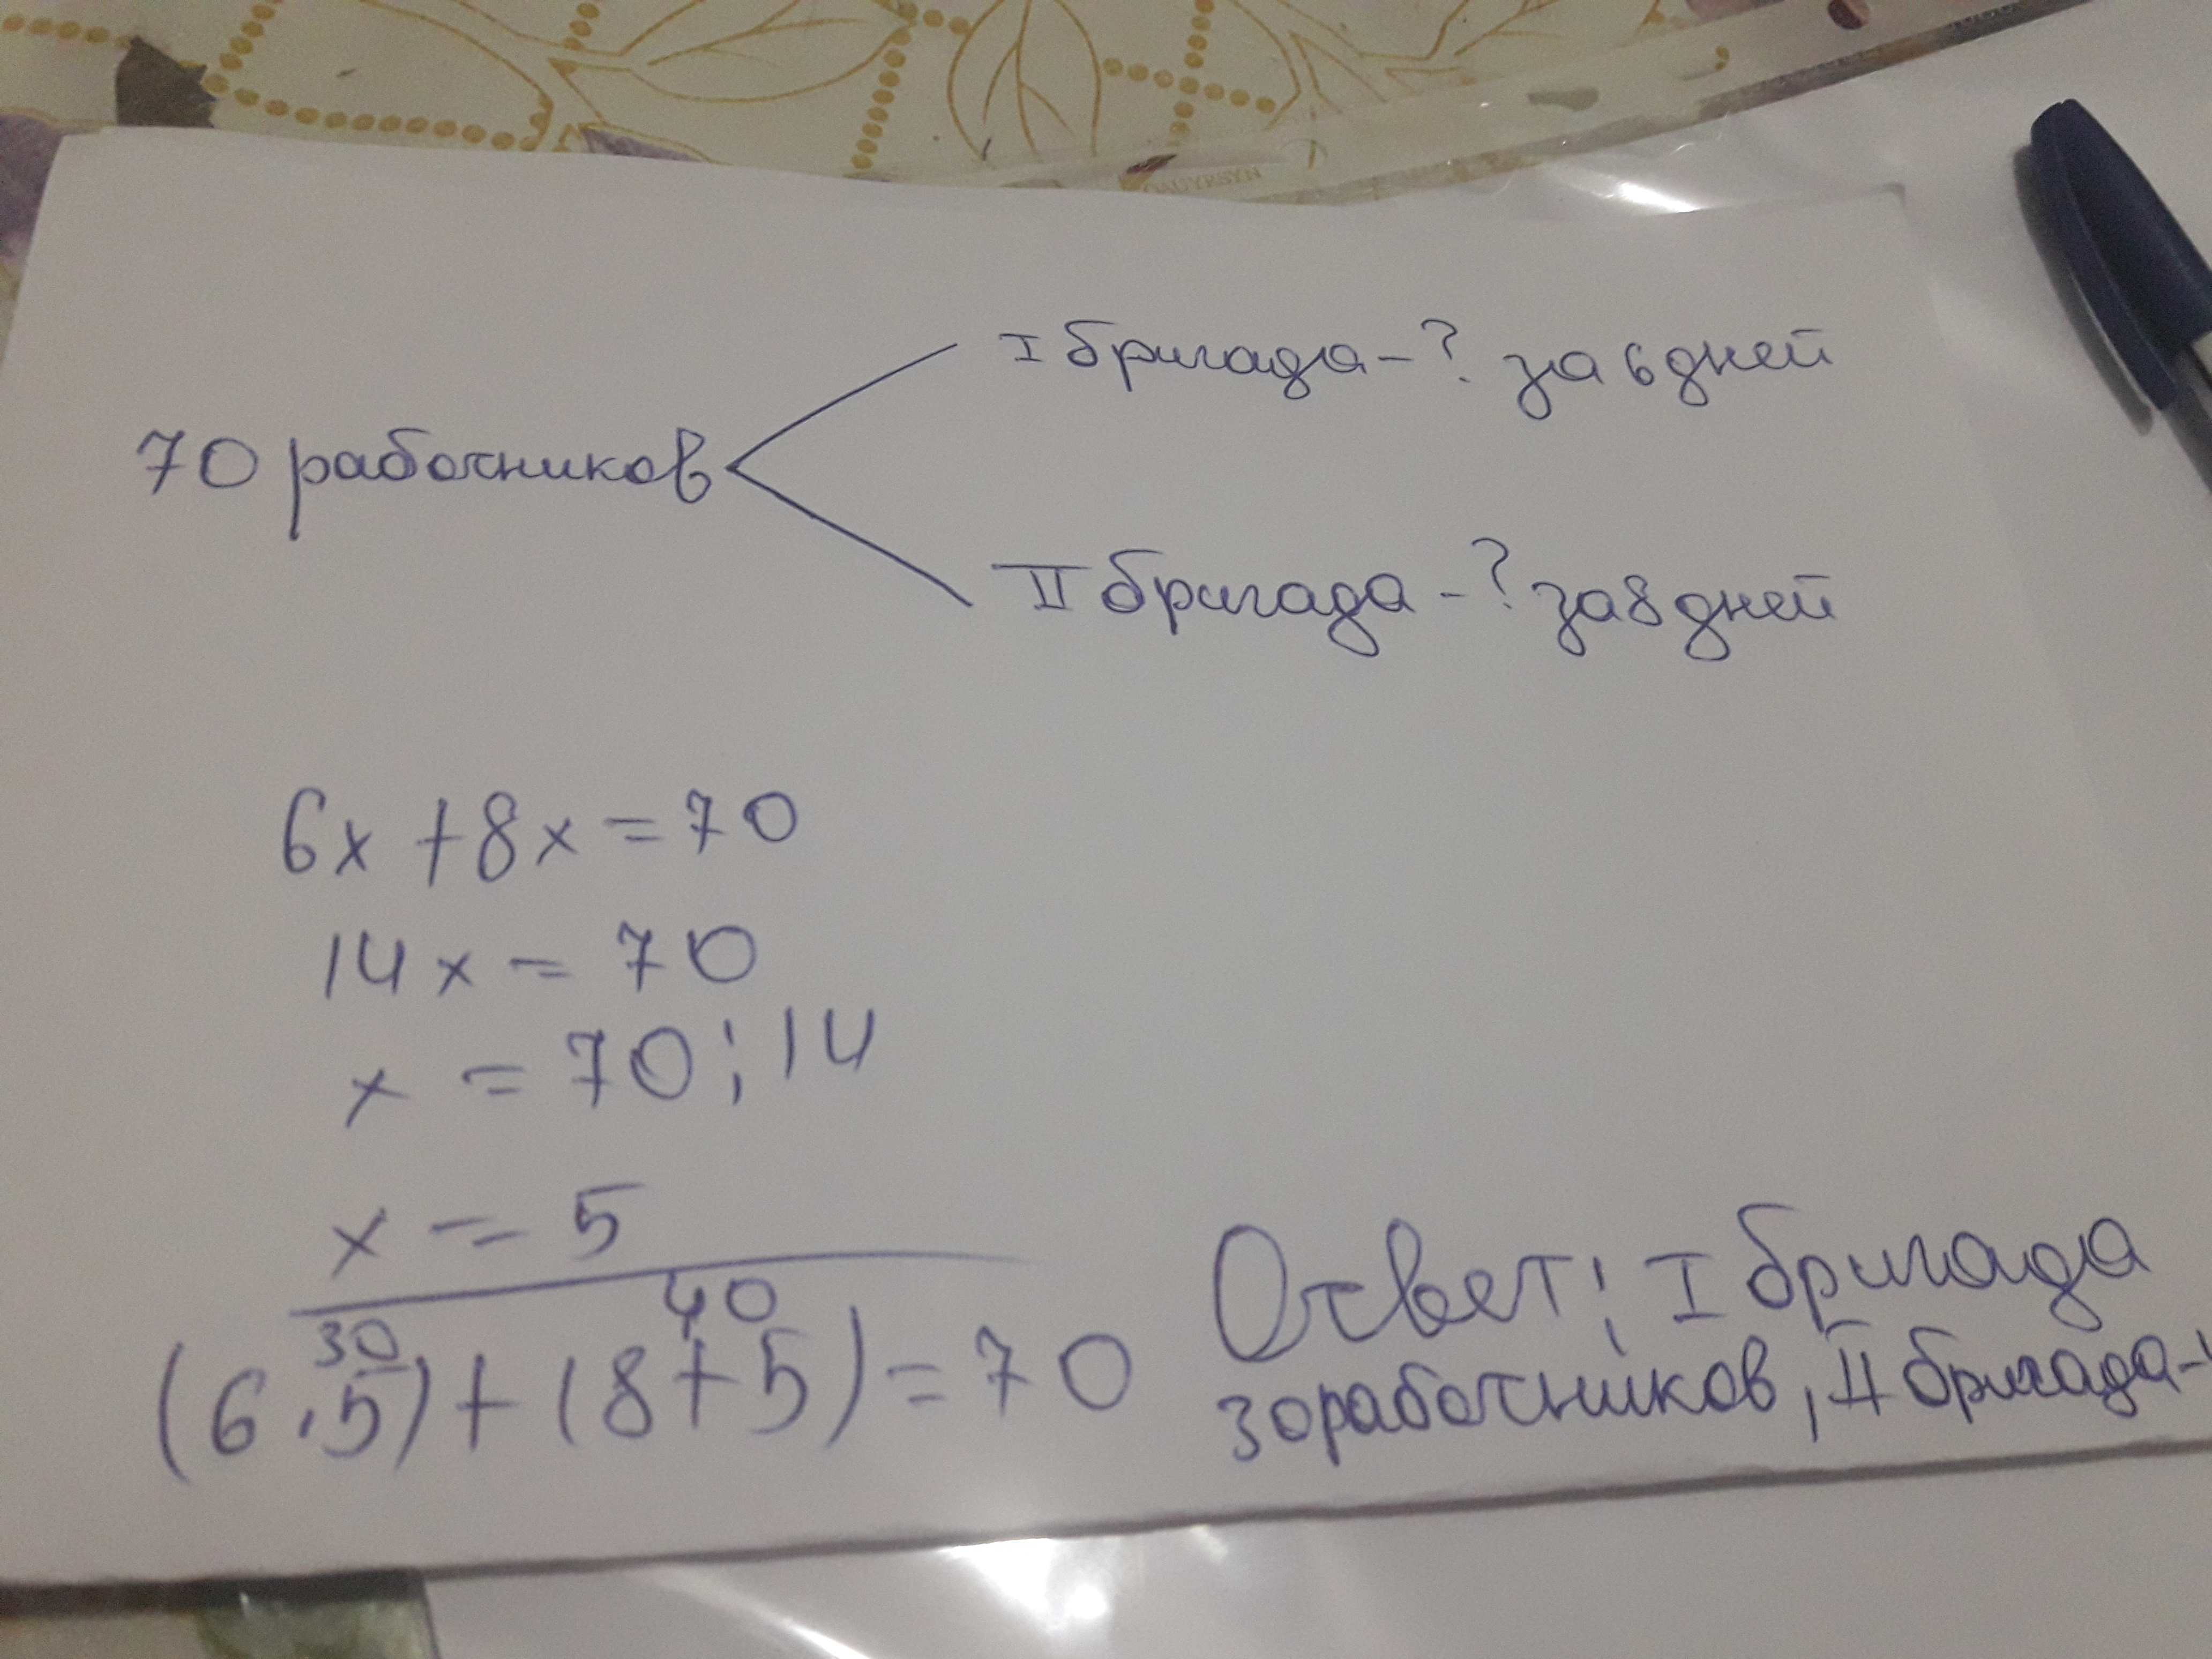 I бригада - ? за 6 дней
70 работников
II бригада - ? за 8 дней
6x + 8x = 70
14x = 70
x = 70 : 14
x = 5
30 40
(6 · 5) + (8 + 5) = 70
Ответ: I бригада
30 работников, II бригада -